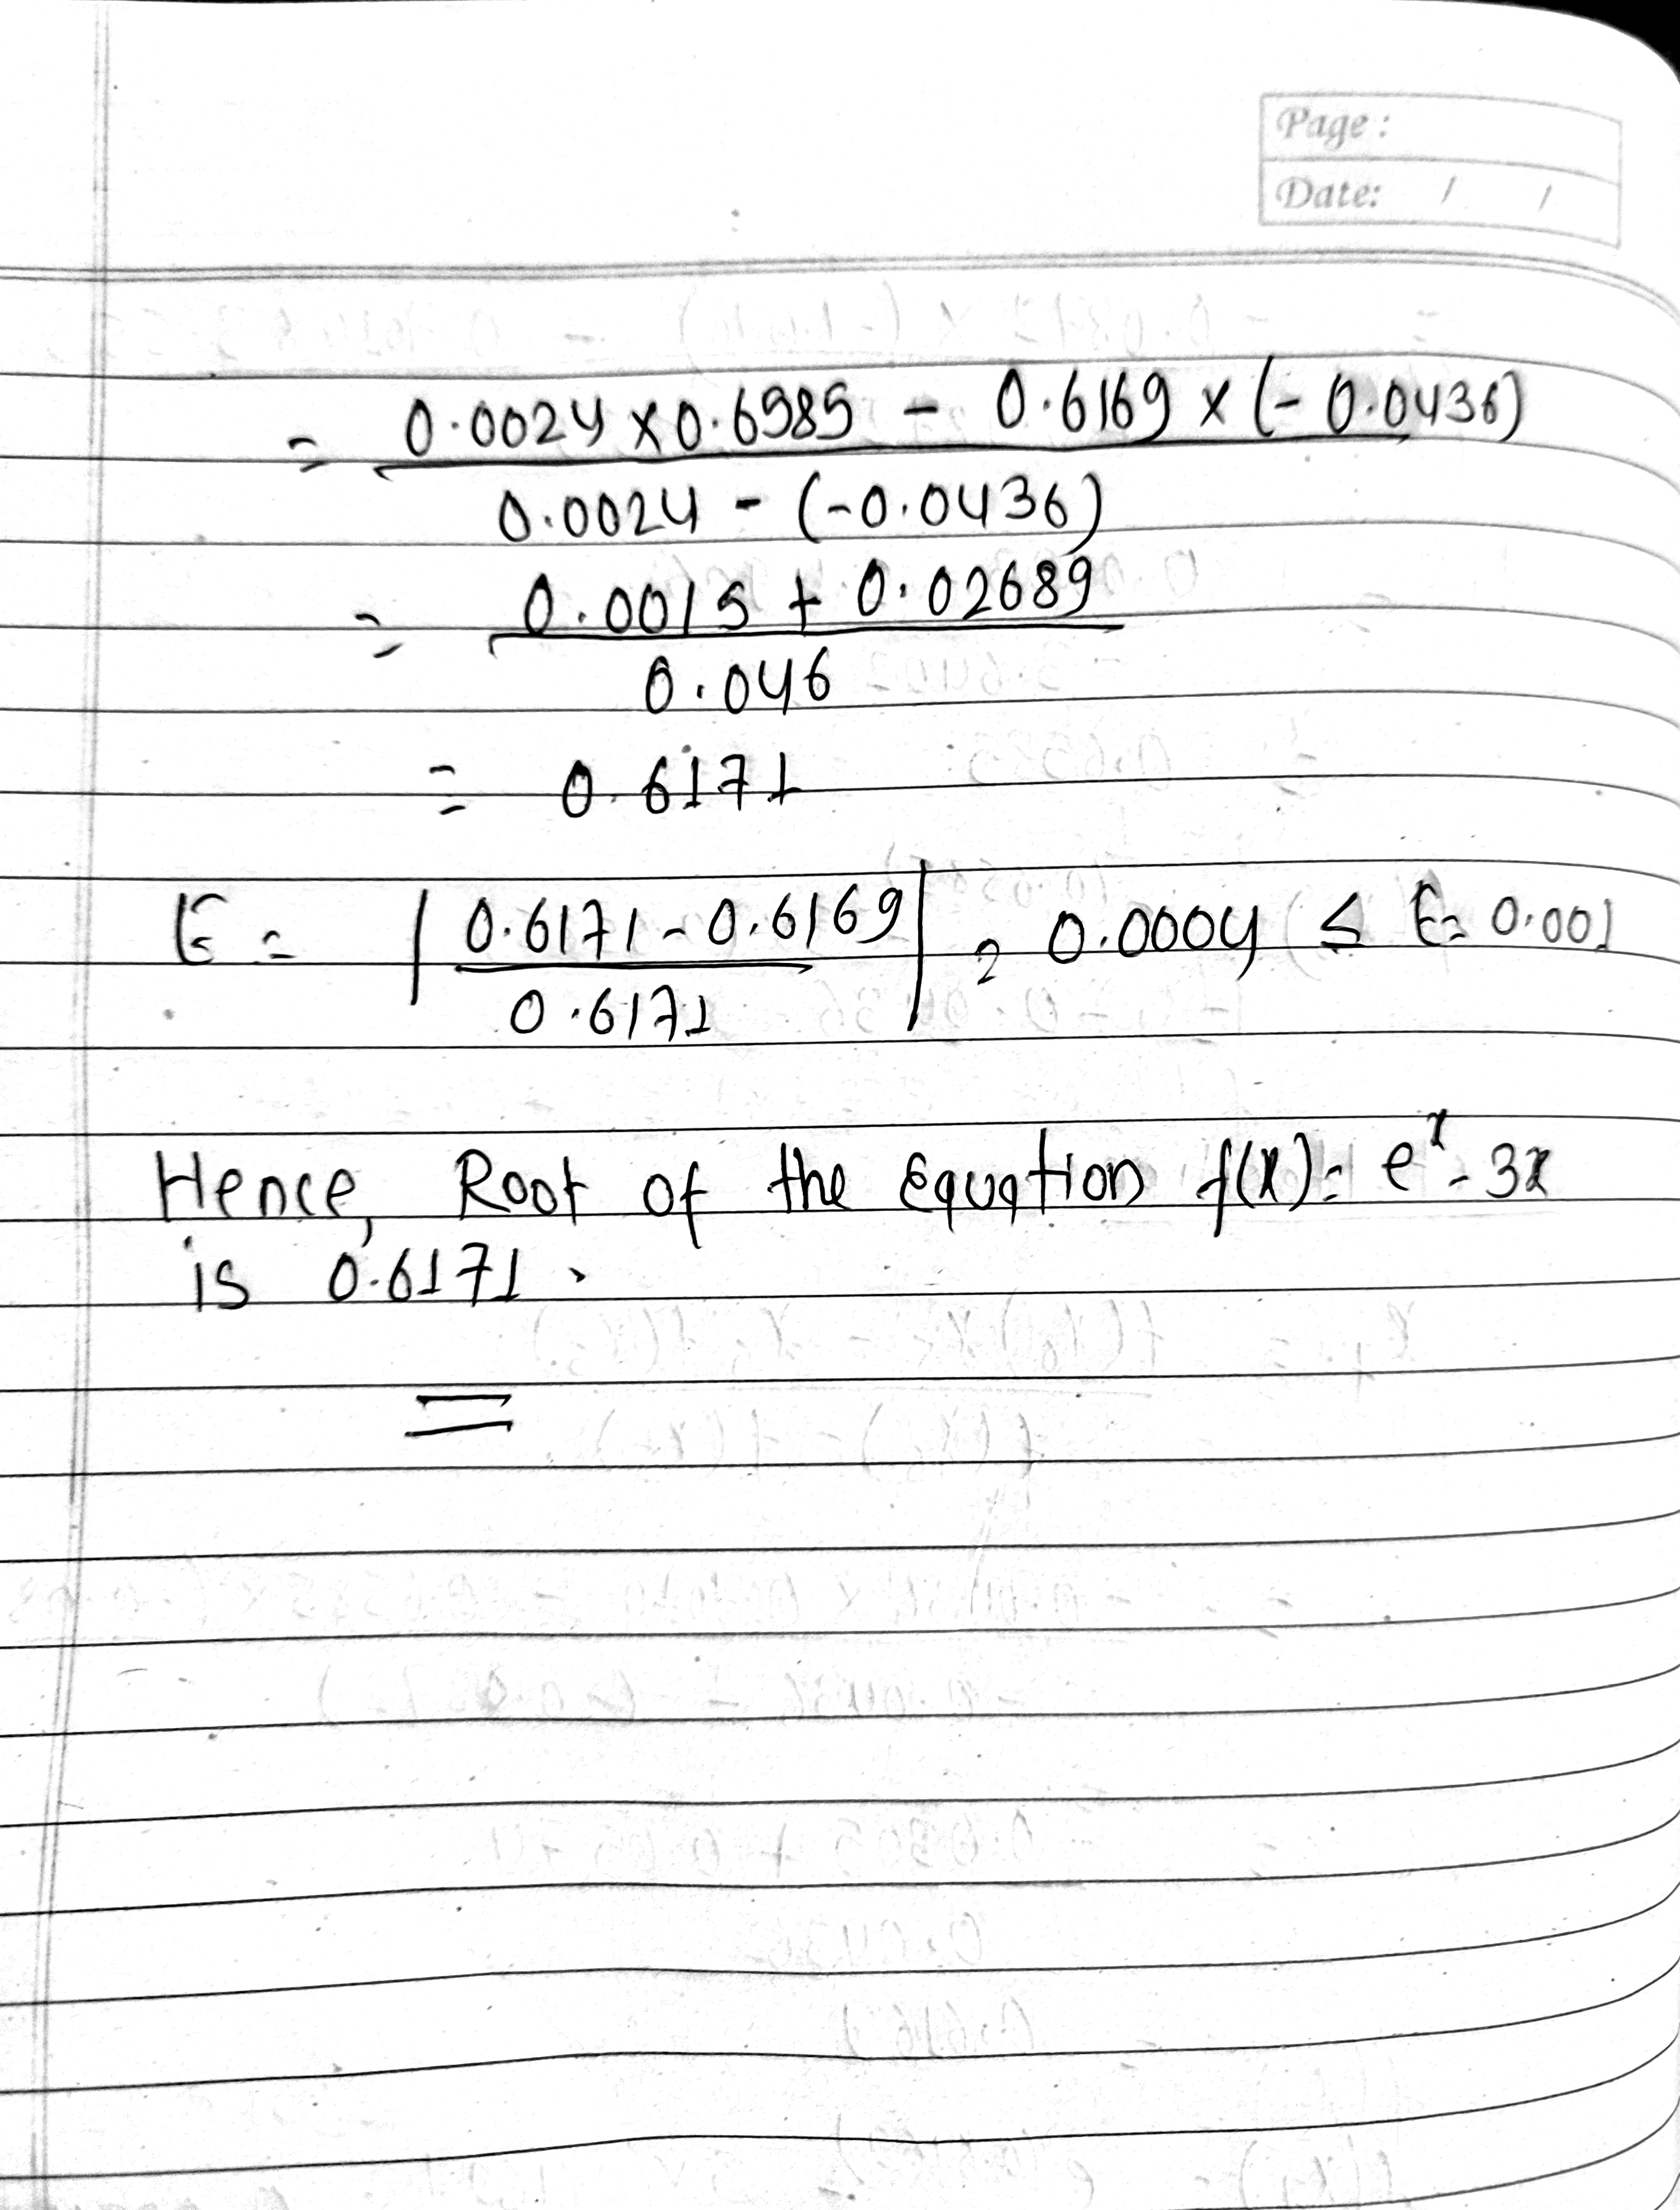 Page :
Date: / /
= 0.0024 x 0.6585 - 0.6169 x (- 0.0436)
0.0024 - (-0.0436)
= 0.0015 + 0.02689
0.046
= 0.6171
E = | 0.6171 - 0.6169 | = 0.0004 ≤ E = 0.001
0.6171
Hence, Root of the Equation f(x) = eˣ - 3x
is 0.6171.